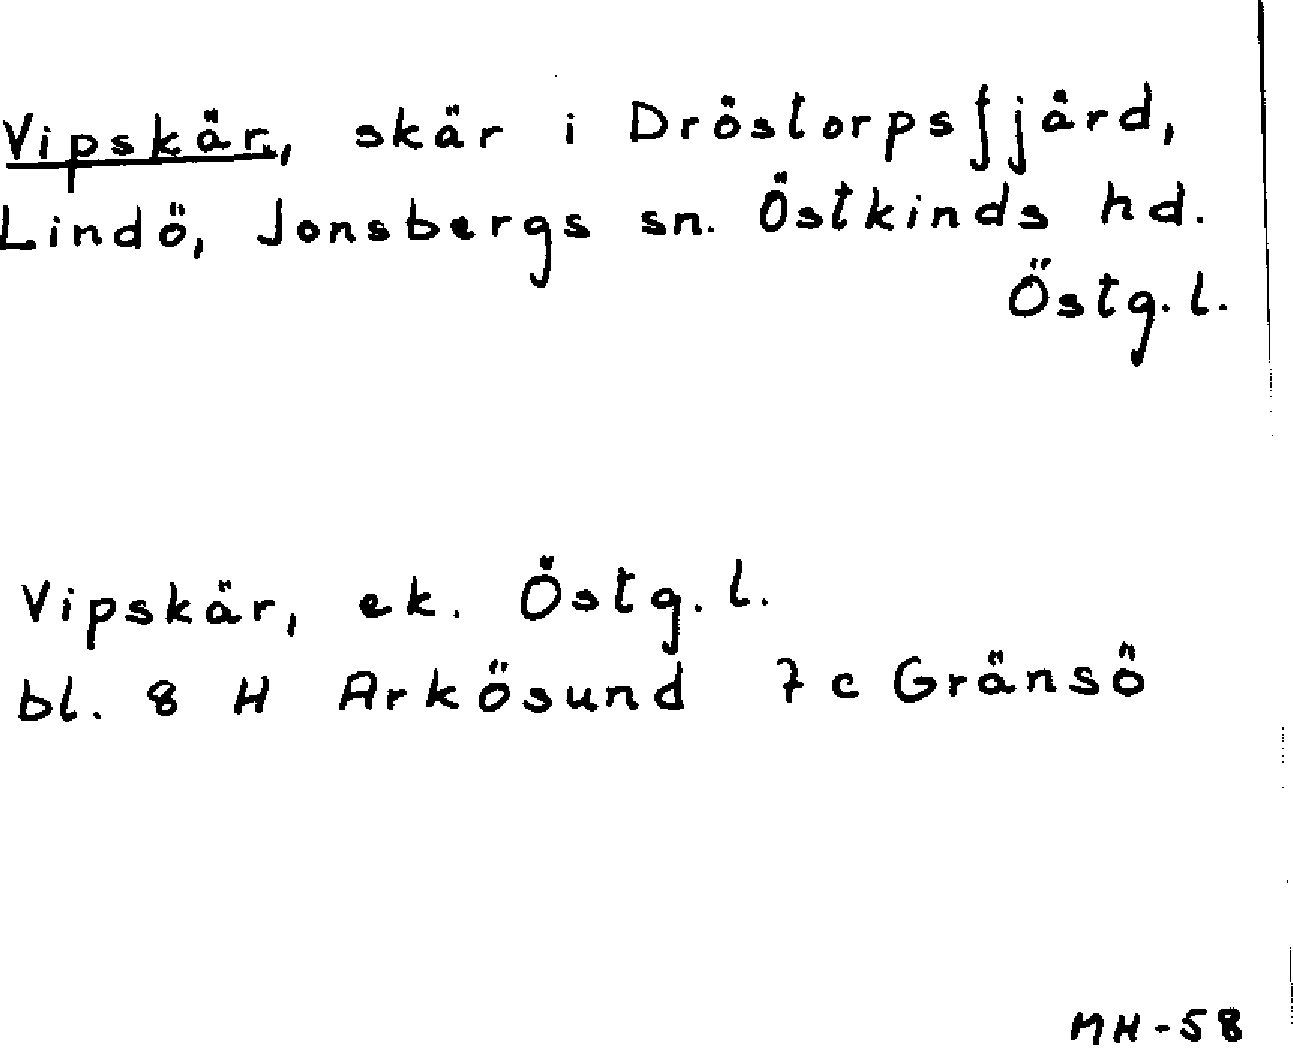 Vipskär, skär i Dröstorpsfjärd,
Lindö, Jonsbergs sn. Östkinds hd.
Östg. l.
Vipskär, ek. Östg. l.
bl. 8 H Arkösund 7 c Gränsö
MH-58